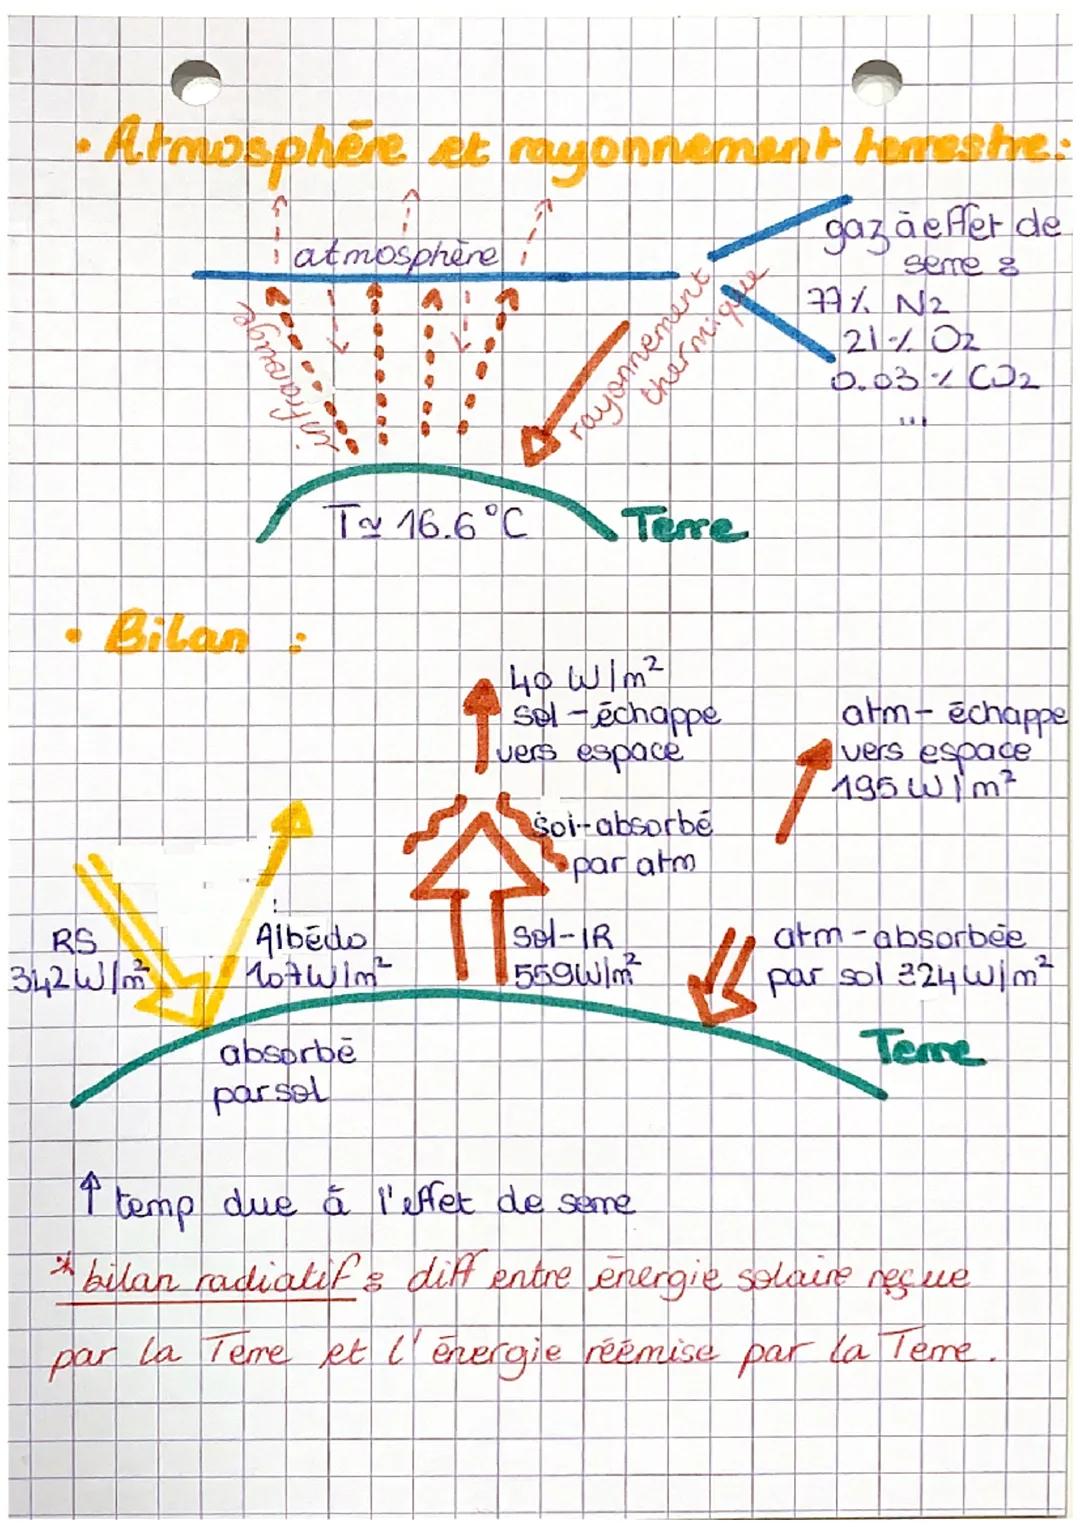 • Atmosphère et rayonnement terrestre :
atmosphère
gaz à effet de
serre :
77% N2
21% O2
0.03% CO2
...
infrarouge
rayonnement
thermique
T≃ 16.6°C
Terre
• Bilan :
40 W/m²
sol-échappe
vers espace
atm-échappe
vers espace
195 W/m²
sol-absorbé
par atm
RS
342 W/m²
Albédo
107 W/m²
sol-IR
559 W/m²
atm-absorbée
par sol 324 W/m²
Terre
absorbé
par sol
↑ temp due à l'effet de serre
* bilan radiatif : diff entre énergie solaire reçue
par la Terre et l'énergie réémise par la Terre.